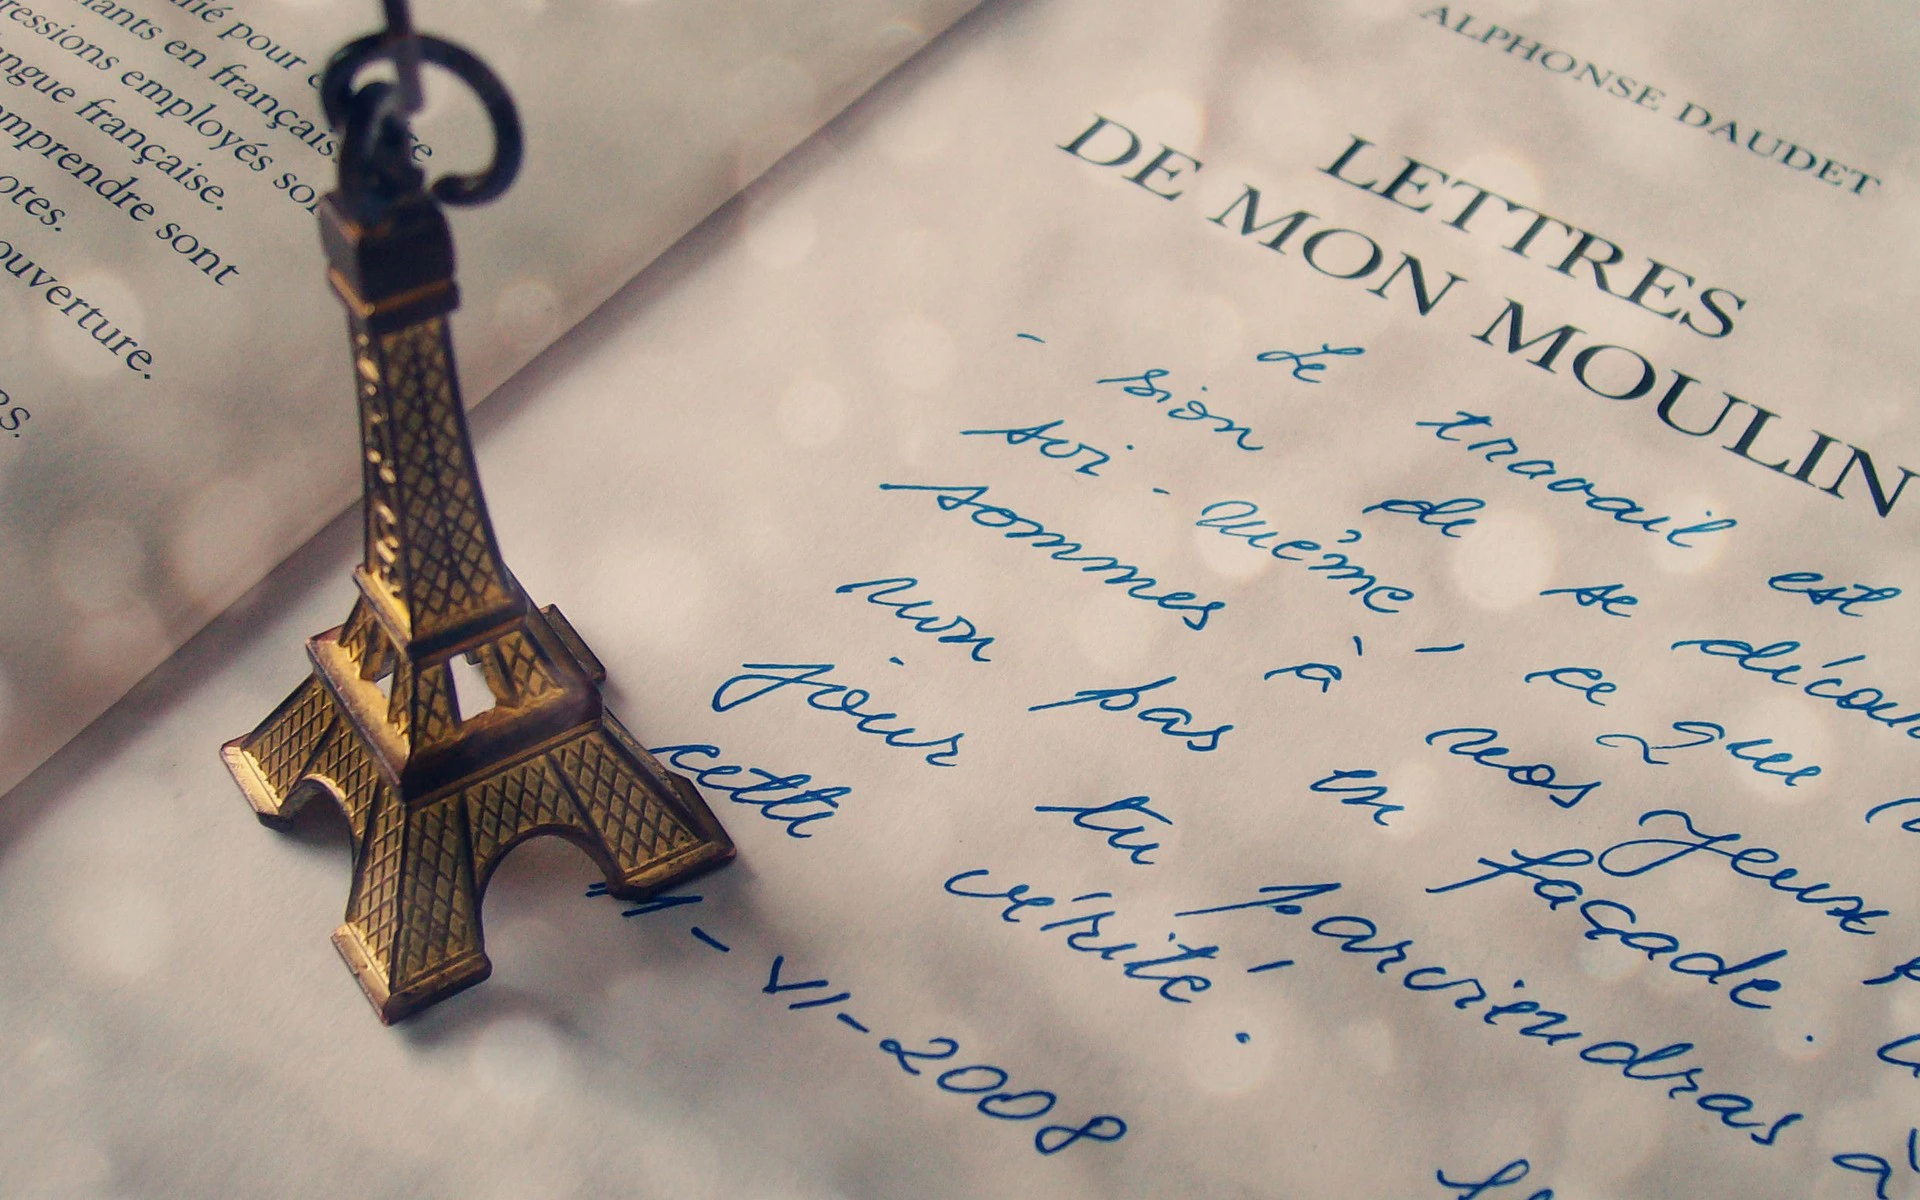 ié pour
iants en français
ressions employés so
ngue française.
omprendre sont
otes.
ouverture.
RS.
ALPHONSE DAUDET
LETTRES
DE MON MOULIN
Le travail est
- sion de se décou
soi-même, ce que
sommes à nos yeux
non pas en façade.
jour tu parviendras à
cette vérité.
11-VI-2008